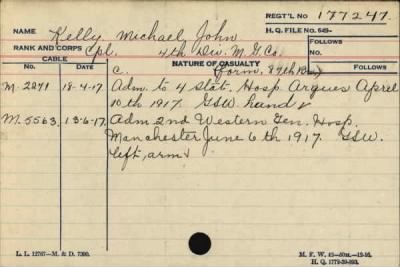 REGT'L NO 177247.
NAME Kelly Michael John H. Q. FILE NO. 649-
RANK AND CORPS Cpl. 4th Div. M.G.Co. FOLLOWS
CABLE NATURE OF CASUALTY FOLLOWS
NO. DATE C. (Form. 87th Bn)
M. 2271 18-4-17. Adm. to 4 Stat. Hosp. Arques April
10th 1917. GSW hand
M. 5563. 13-6-17. Adm. 2nd Western Gen. Hosp.
Manchester June 6th 1917. GSW.
left, arm
L. L. 12767—M. & D. 7390. M. F. W. 42—50M.—12-16.
H. Q. 1772-39-893.